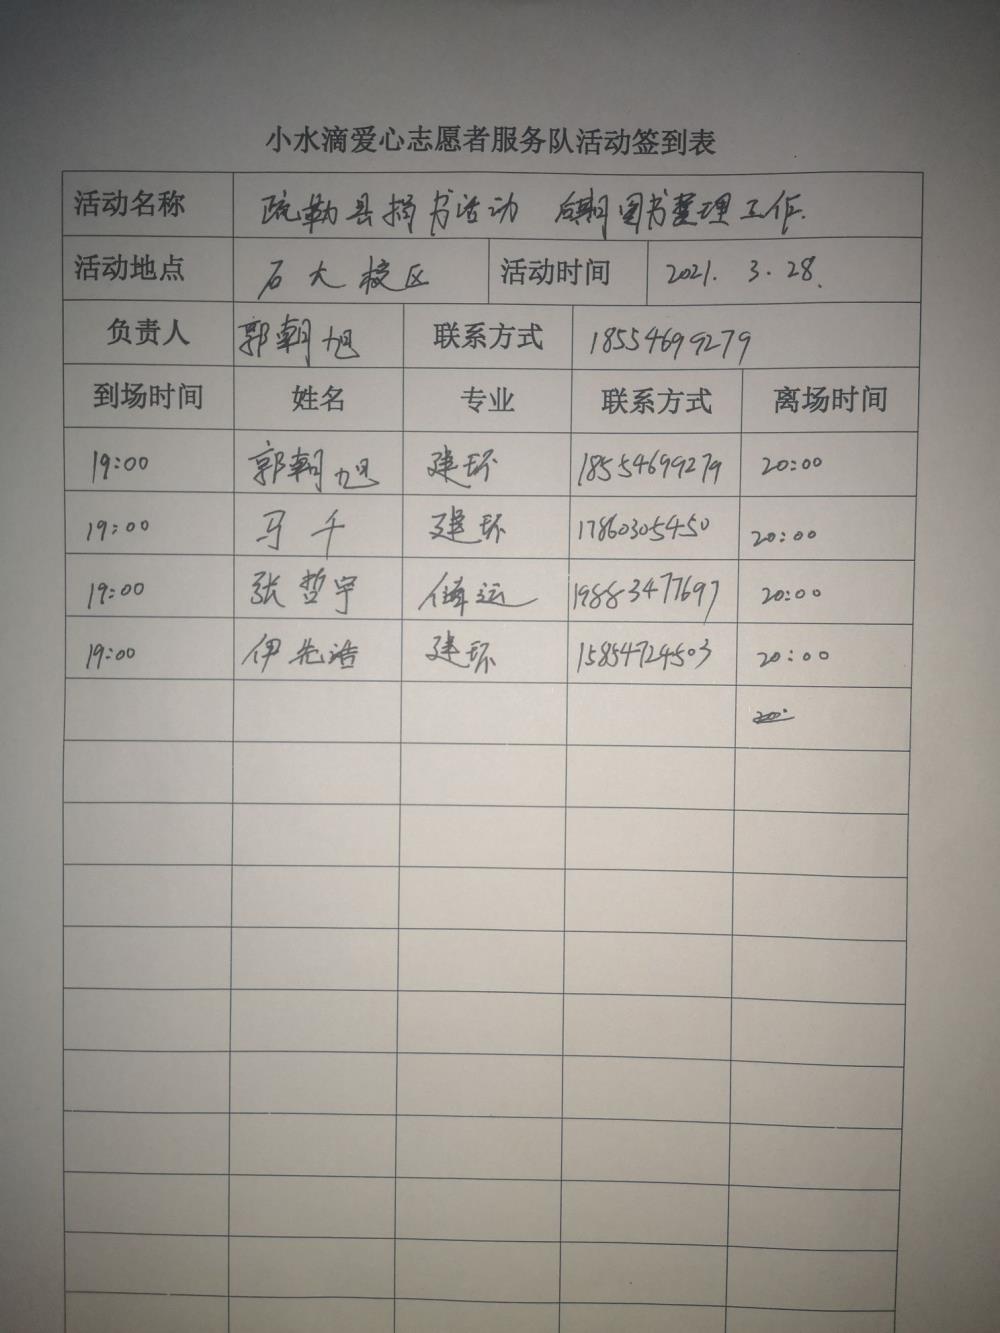 小水滴爱心志愿者服务队活动签到表
活动名称 疏勒县捐书活动 后期图书整理工作.
活动地点 石大校区 活动时间 2021. 3. 28.
负责人 郭朝旭 联系方式 18554699279
到场时间 姓名 专业 联系方式 离场时间
19:00 郭朝旭 建环 18554699279 20:00
19:00 马千 建环 17860305450 20:00
19:00 张哲宇 储运 19883477697 20:00
19:00 伊先浩 建环 15854724503 20:00